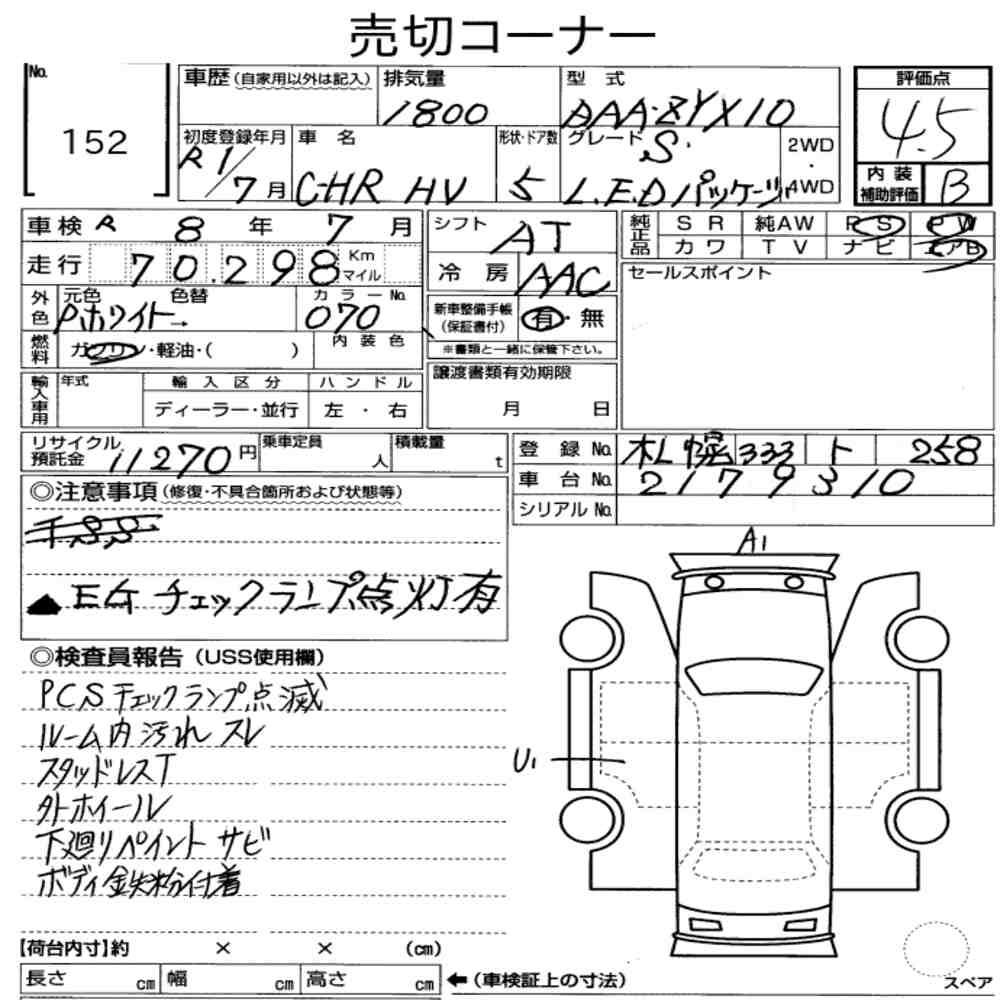 売切コーナー
No. 152
車歴 (自家用以外は記入) 排気量 1800 型式 DAA-ZYX10
初度登録年月 R1/7月 車名 C-HR HV 形状・ドア数 5 グレード S. L.E.Dパッケージ 2WD・4WD
評価点 4.5
内装補助評価 B
車検 R 8年 7月
走行 70.298 Km マイル
外色 元色 Pホワイト→ 色替 カラーNo. 070
燃料 ガソリン・軽油・( ) 内装色
輸入車用 年式 輸入区分 ハンドル
ディーラー・並行 左・右
シフト AT
冷房 AAC
新車整備手帳(保証書付) 有・無
※書類と一緒に保管下さい。
譲渡書類有効期限
月 日
純正品 SR 純AW PS PW
カワ TV ナビ エアB
セールスポイント
リサイクル預託金 11270円 乗車定員 人 積載量 t
登録No. 札幌 333 ト 258
車台No. 2179310
シリアルNo.
◎注意事項 (修復・不具合箇所および状態等)
▲EGチェックランプ点灯有
◎検査員報告 (USS使用欄)
PCSチェックランプ点滅
ルーム内汚れ スレ
スタッドレスT
外ホイール
下廻りペイント サビ
ボディ鉄粉付着
A1
U1
【荷台内寸】約 × × (cm)
長さ cm 幅 cm 高さ cm ←(車検証上の寸法)
スペア